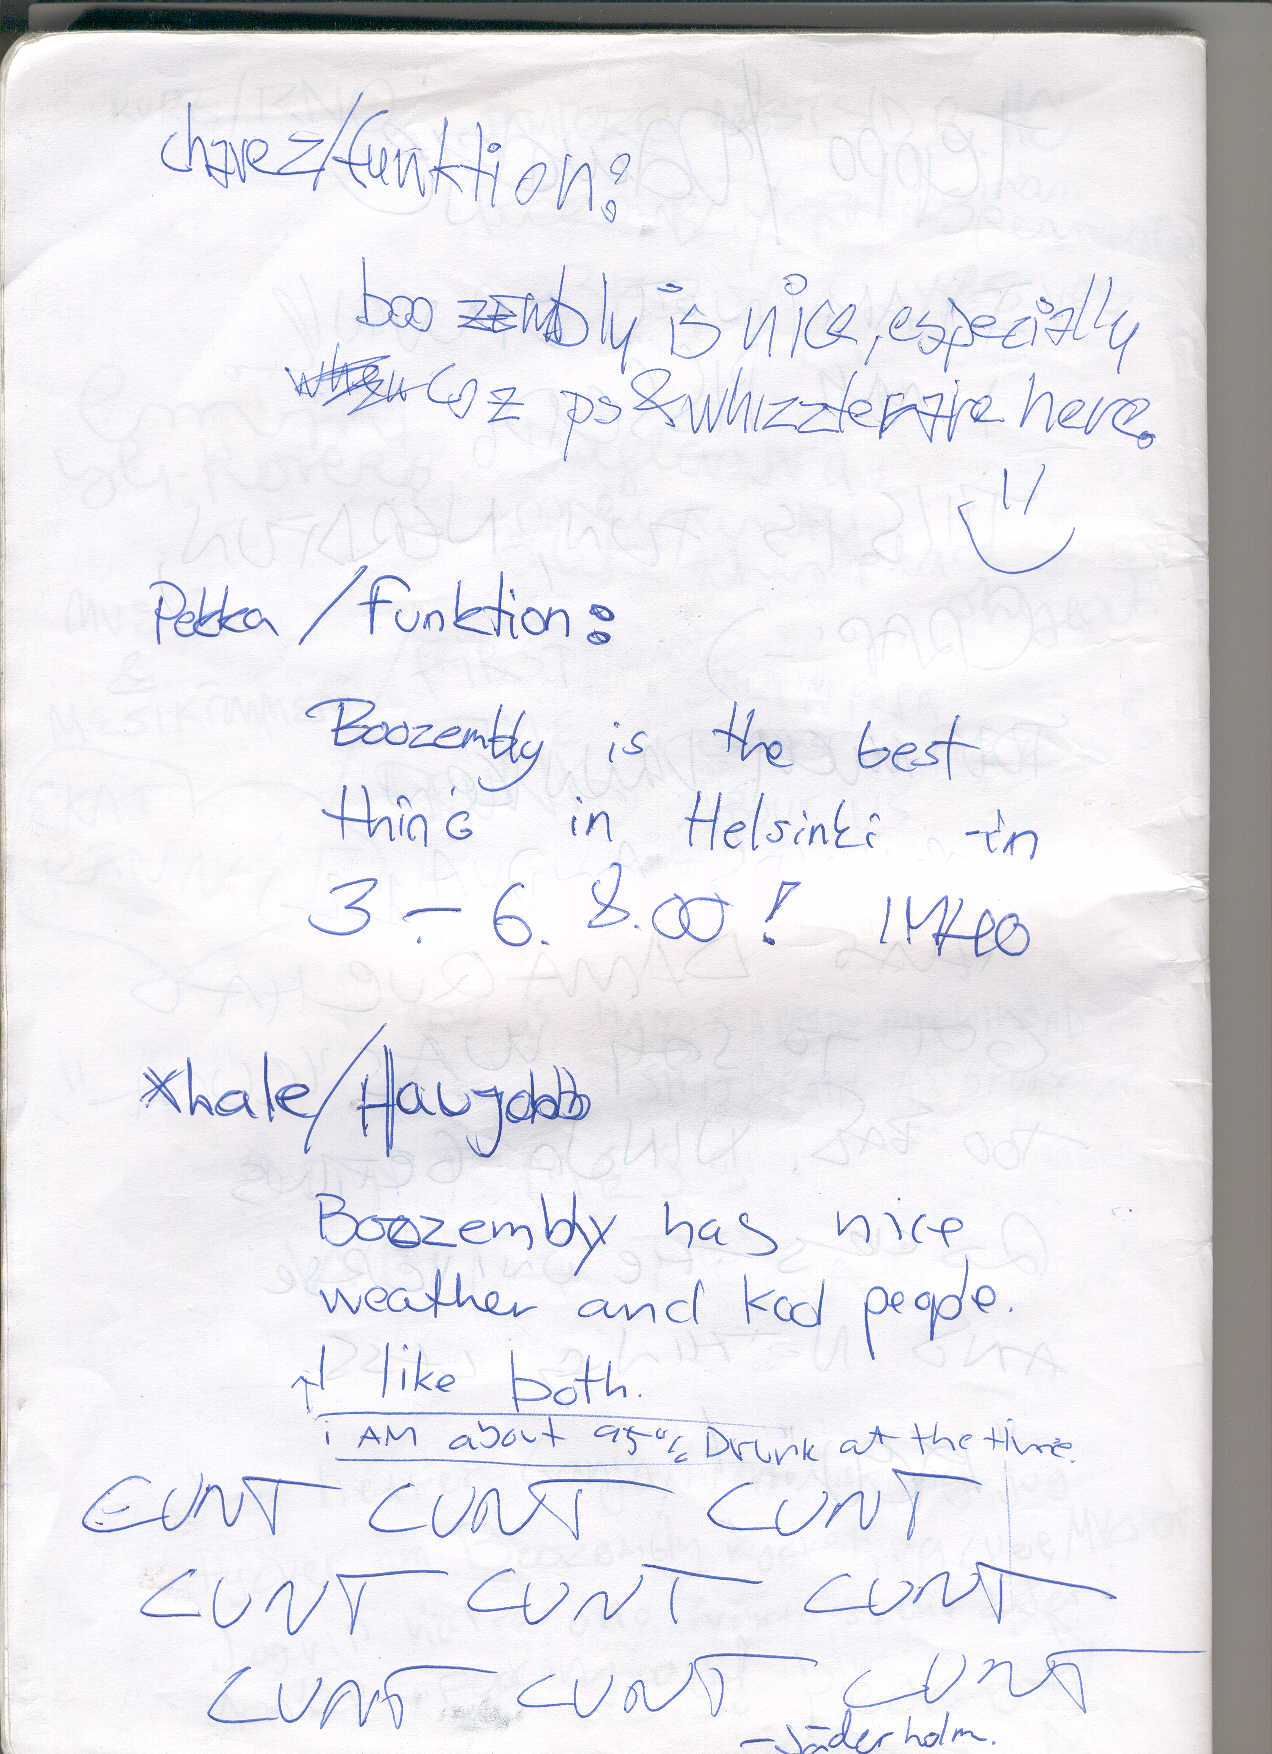 chavez/funktion:
boozembly is nice, especially
when coz ps & whizzter are here.
Pekka / funktion:
Boozembly is the best
thing in Helsinki in
3.-6. 8.00! IMHO
Xhale/Haujobb
Boozembly has nice
weather and kool people.
I like both.
i AM about 95% Drunk at the time.
CUNT CUNT CUNT
CUNT CUNT CUNT
CUNT CUNT CUNT
-Jäderholm.